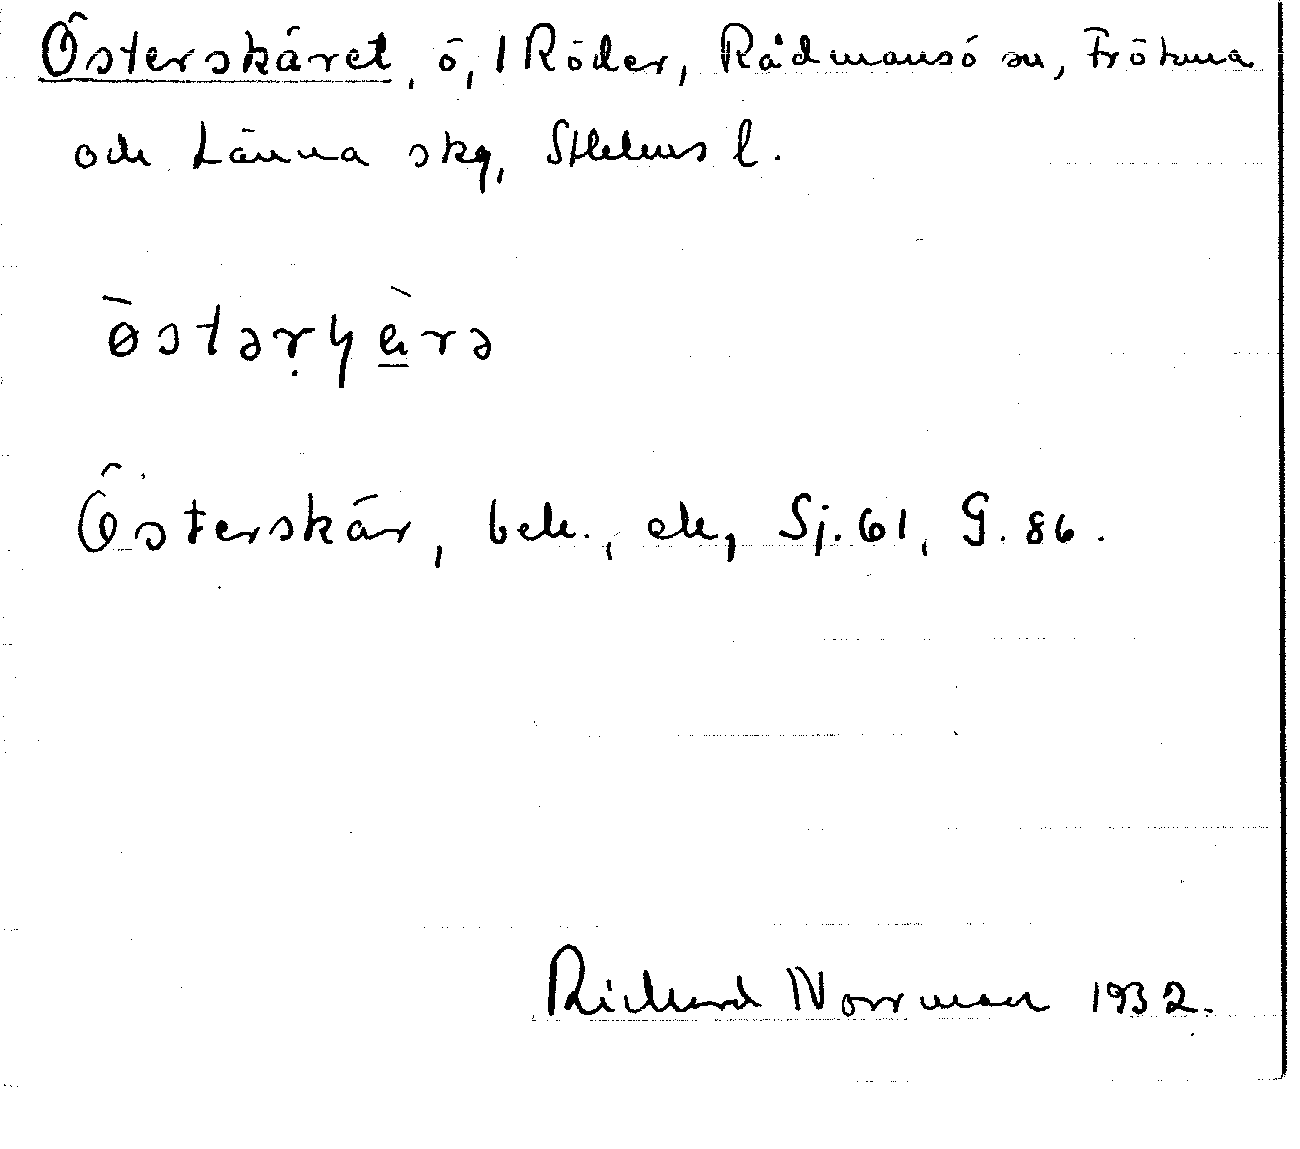 Österskäret, ö, i Röder, Rådmansö sn, Frötuna
och Länna skg, Sthlms l.
ø̀stərɥæ̀rə
Österskär, beb., ek, Sj. 61, G. 86.
Richard Norrman 1932.